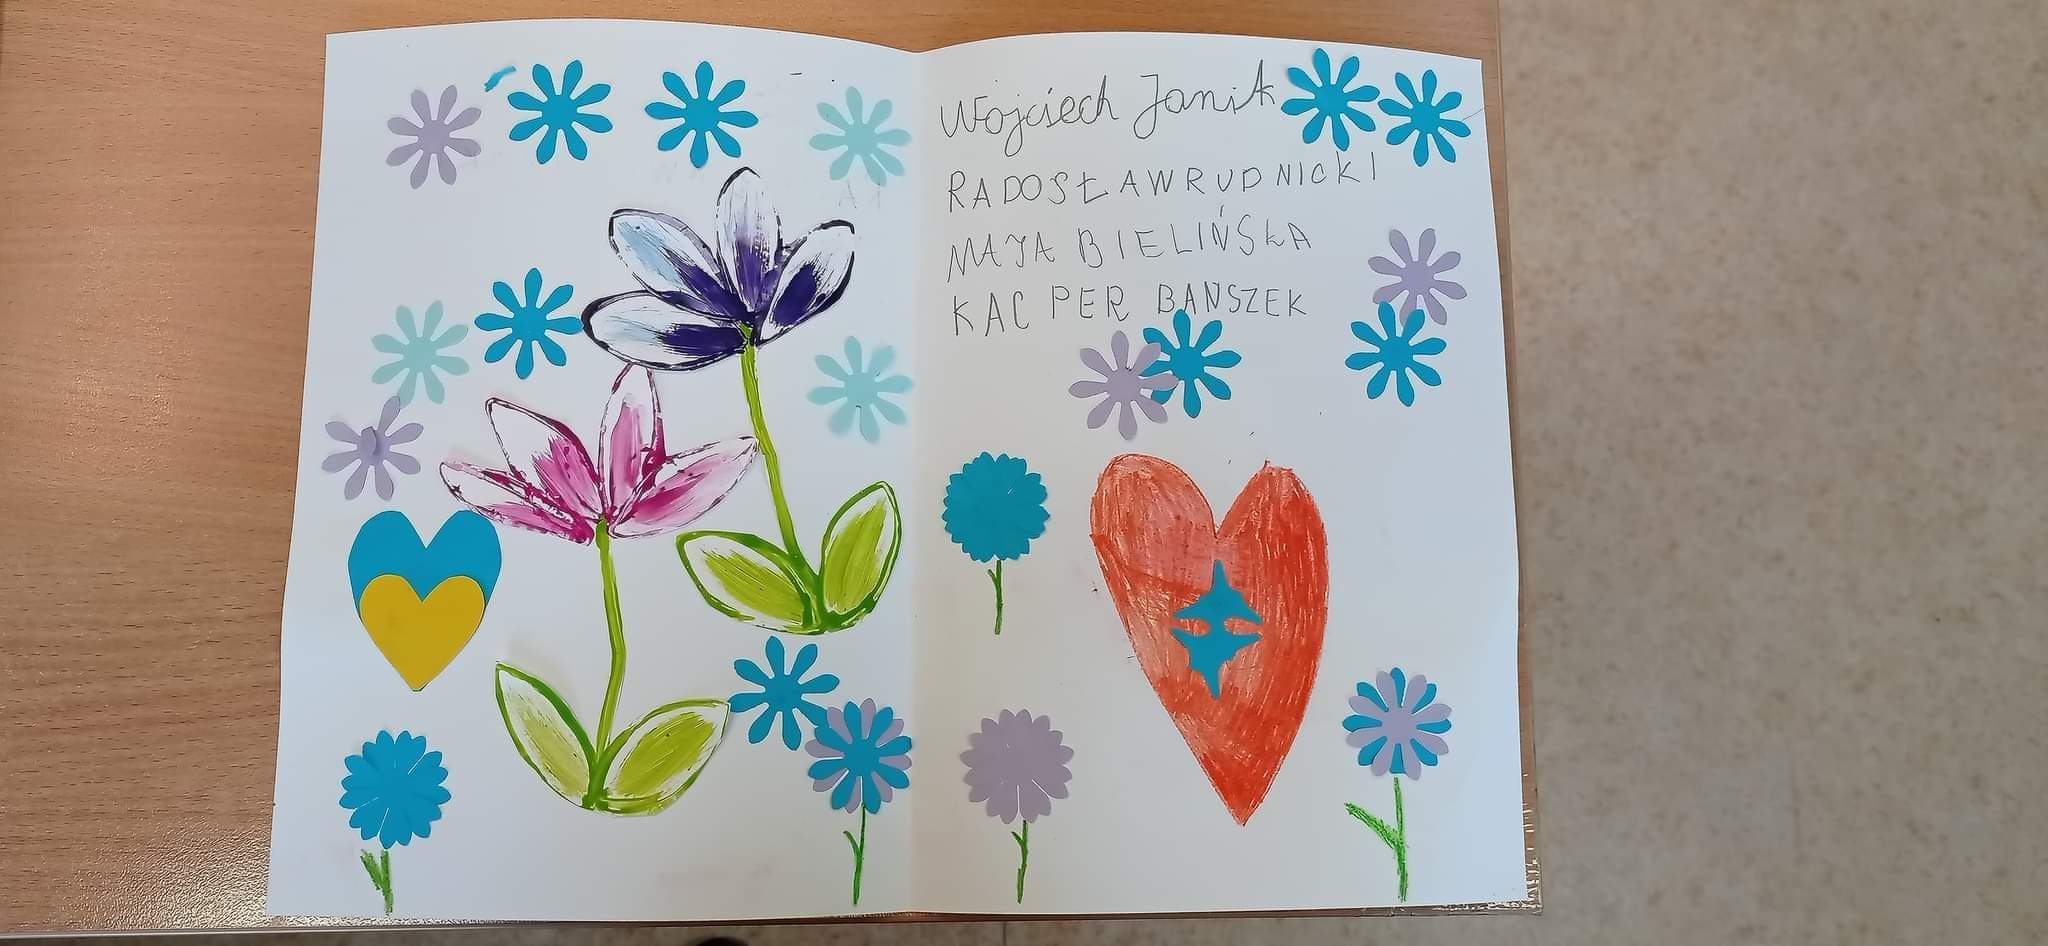 Wojciech Janik
RADOSŁAW RUDNICKI
MAJA BIELIŃSKA
KACPER BAŃSZEK